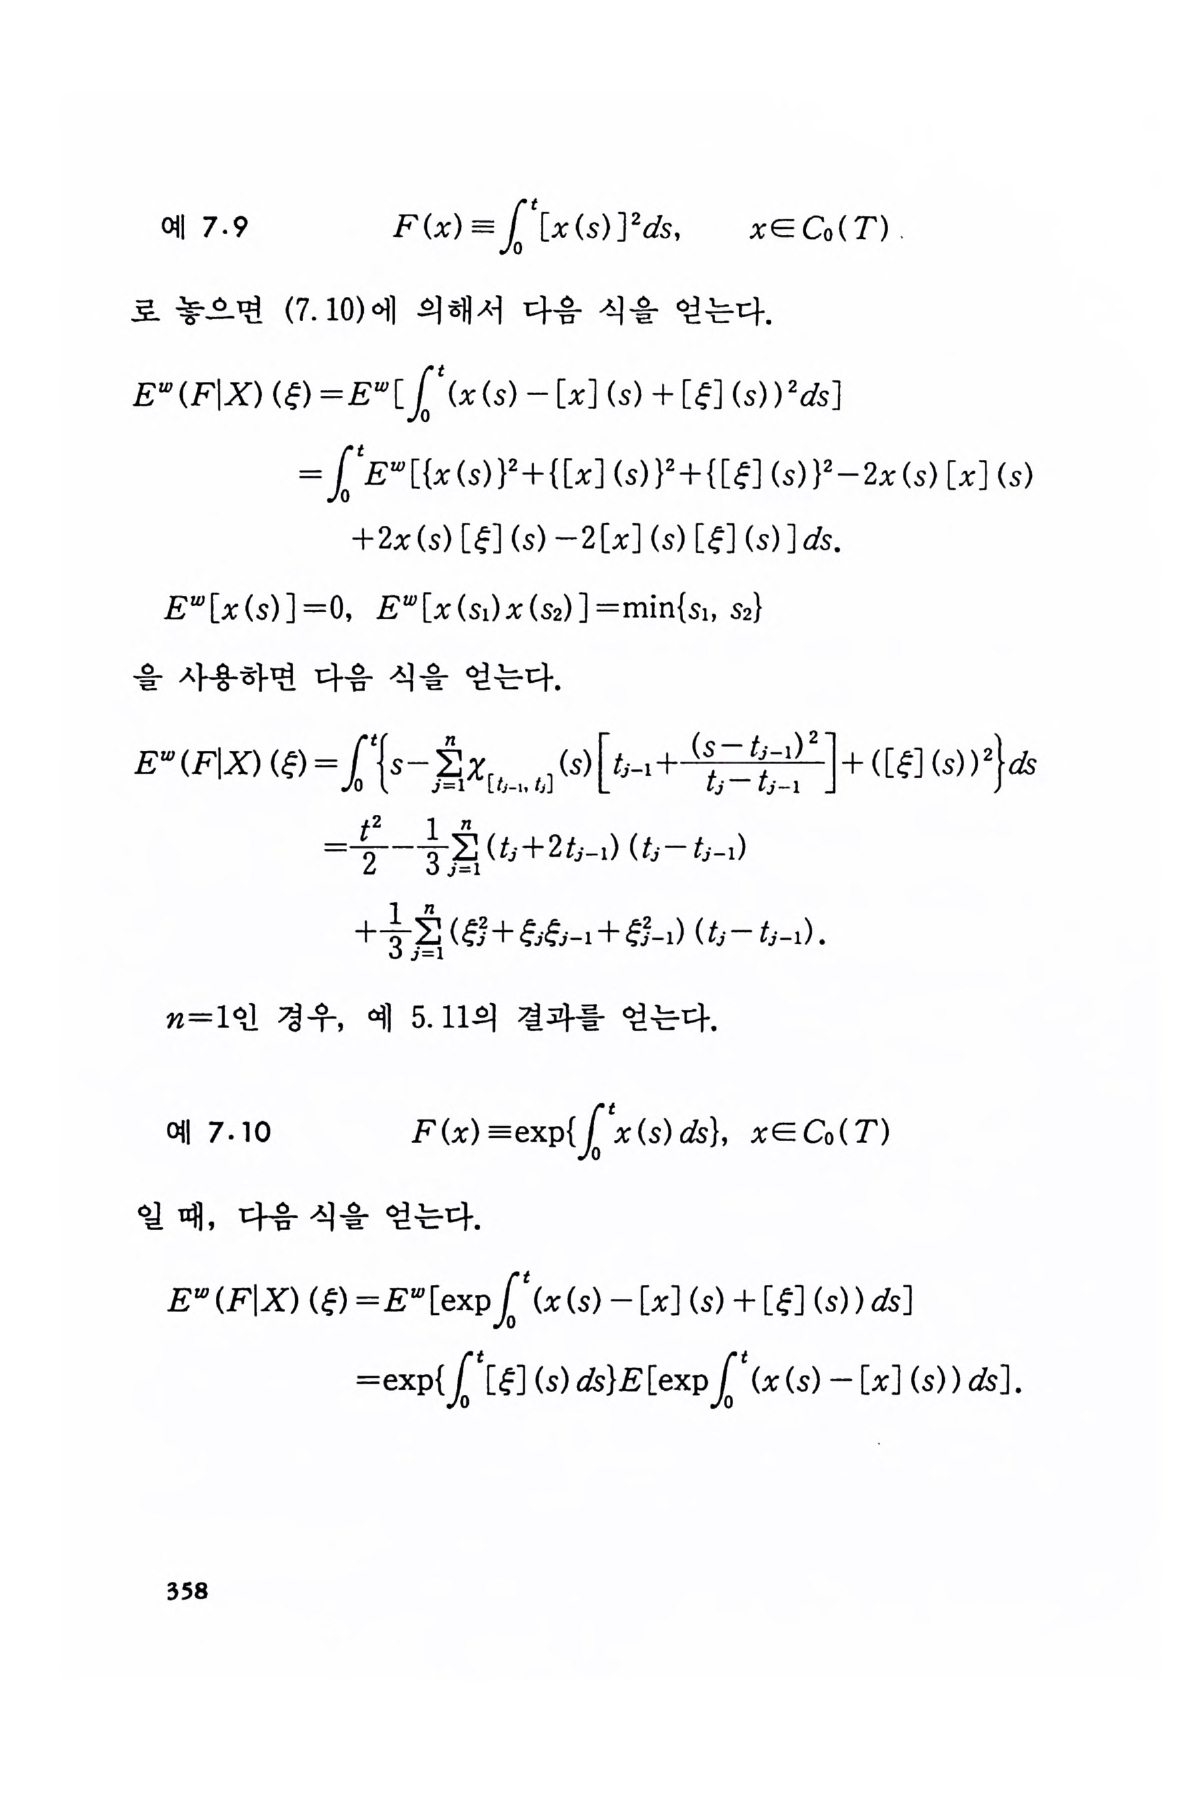 예 7.9 F(x)≡∫₀ᵗ[x(s)]²ds, x∈C₀(T).
로 놓으면 (7.10)에 의해서 다음 식을 얻는다.
Eʷ(F|X)(ξ)=Eʷ[∫₀ᵗ(x(s)−[x](s)+[ξ](s))²ds]
=∫₀ᵗEʷ[{x(s)}²+{[x](s)}²+{[ξ](s)}²−2x(s)[x](s)
+2x(s)[ξ](s)−2[x](s)[ξ](s)]ds.
Eʷ[x(s)]=0, Eʷ[x(s₁)x(s₂)]=min{s₁, s₂}
을 사용하면 다음 식을 얻는다.
Eʷ(F|X)(ξ)=∫₀ᵗ{s−∑_{j=1}^{n}χ_{[t_{j-1}, t_j]}(s)[t_{j-1}+\frac{(s−t_{j-1})²}{t_j−t_{j-1}}]+([ξ](s))²}ds
=\frac{t²}{2}−\frac{1}{3}∑_{j=1}^{n}(t_j+2t_{j-1})(t_j−t_{j-1})
+\frac{1}{3}∑_{j=1}^{n}(ξ_j²+ξ_jξ_{j-1}+ξ_{j-1}²)(t_j−t_{j-1}).
n=1인 경우, 예 5.11의 결과를 얻는다.
예 7.10 F(x)≡exp{∫₀ᵗx(s)ds}, x∈C₀(T)
일 때, 다음 식을 얻는다.
Eʷ(F|X)(ξ)=Eʷ[exp∫₀ᵗ(x(s)−[x](s)+[ξ](s))ds]
=exp{∫₀ᵗ[ξ](s)ds}E[exp∫₀ᵗ(x(s)−[x](s))ds].
358